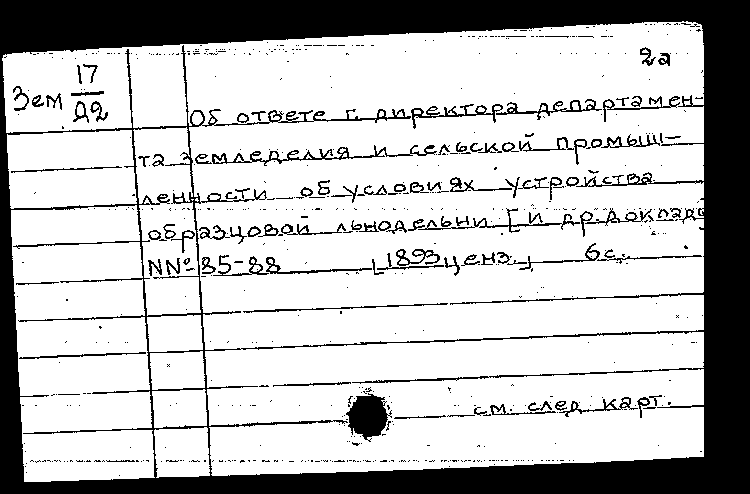 2а
Зем 17/Д2
Об ответе г. директора департамен-
та земледелия и сельской промыш-
ленности об условиях устройства
образцовой льнодельни. [и др. доклады
NNº 85-88 [1893, ценз.] 6 с.
см. след карт.